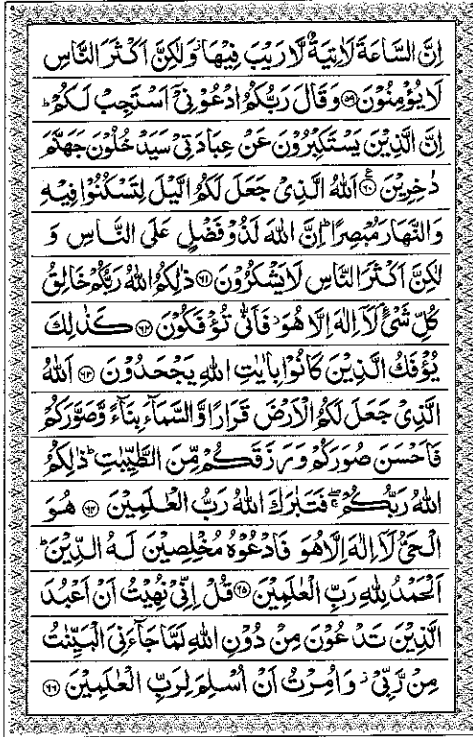 اِنَّ السَّاعَةَ لَاٰتِيَةٌ لَّا رَيْبَ فِيْهَا ؗ وَلٰكِنَّ اَكْثَرَ النَّاسِ
لَا يُؤْمِنُوْنَ ﴿۵۹﴾ وَقَالَ رَبُّكُمُ ادْعُوْنِيْۤ اَسْتَجِبْ لَكُمْ ؕ
اِنَّ الَّذِيْنَ يَسْتَكْبِرُوْنَ عَنْ عِبَادَتِيْ سَيَدْخُلُوْنَ جَهَنَّمَ
دٰخِرِيْنَ ﴿۶۰﴾ ع اَللّٰهُ الَّذِيْ جَعَلَ لَكُمُ الَّيْلَ لِتَسْكُنُوْا فِيْهِ
وَالنَّهَارَ مُبْصِرًا ؕ اِنَّ اللّٰهَ لَذُوْ فَضْلٍ عَلَى النَّاسِ وَ
لٰكِنَّ اَكْثَرَ النَّاسِ لَا يَشْكُرُوْنَ ﴿۶۱﴾ ذٰلِكُمُ اللّٰهُ رَبُّكُمْ خَالِقُ
كُلِّ شَيْءٍ ۘ لَاۤ اِلٰهَ اِلَّا هُوَ ؗ فَاَنّٰى تُؤْفَكُوْنَ ﴿۶۲﴾ كَذٰلِكَ
يُؤْفَكُ الَّذِيْنَ كَانُوْا بِاٰيٰتِ اللّٰهِ يَجْحَدُوْنَ ﴿۶۳﴾ اَللّٰهُ
الَّذِيْ جَعَلَ لَكُمُ الْاَرْضَ قَرَارًا وَّالسَّمَآءَ بِنَآءً وَّصَوَّرَكُمْ
فَاَحْسَنَ صُوَرَكُمْ وَرَزَقَكُمْ مِّنَ الطَّيِّبٰتِ ؕ ذٰلِكُمُ
اللّٰهُ رَبُّكُمْ ۖ فَتَبٰرَكَ اللّٰهُ رَبُّ الْعٰلَمِيْنَ ﴿۶۴﴾ هُوَ
الْحَيُّ لَاۤ اِلٰهَ اِلَّا هُوَ فَادْعُوْهُ مُخْلِصِيْنَ لَهُ الدِّيْنَ ؕ
اَلْحَمْدُ لِلّٰهِ رَبِّ الْعٰلَمِيْنَ ﴿۶۵﴾ قُلْ اِنِّيْ نُهِيْتُ اَنْ اَعْبُدَ
الَّذِيْنَ تَدْعُوْنَ مِنْ دُوْنِ اللّٰهِ لَمَّا جَآءَنِيَ الْبَيِّنٰتُ
مِنْ رَّبِّيْ ؗ وَاُمِرْتُ اَنْ اُسْلِمَ لِرَبِّ الْعٰلَمِيْنَ ﴿۶۶﴾